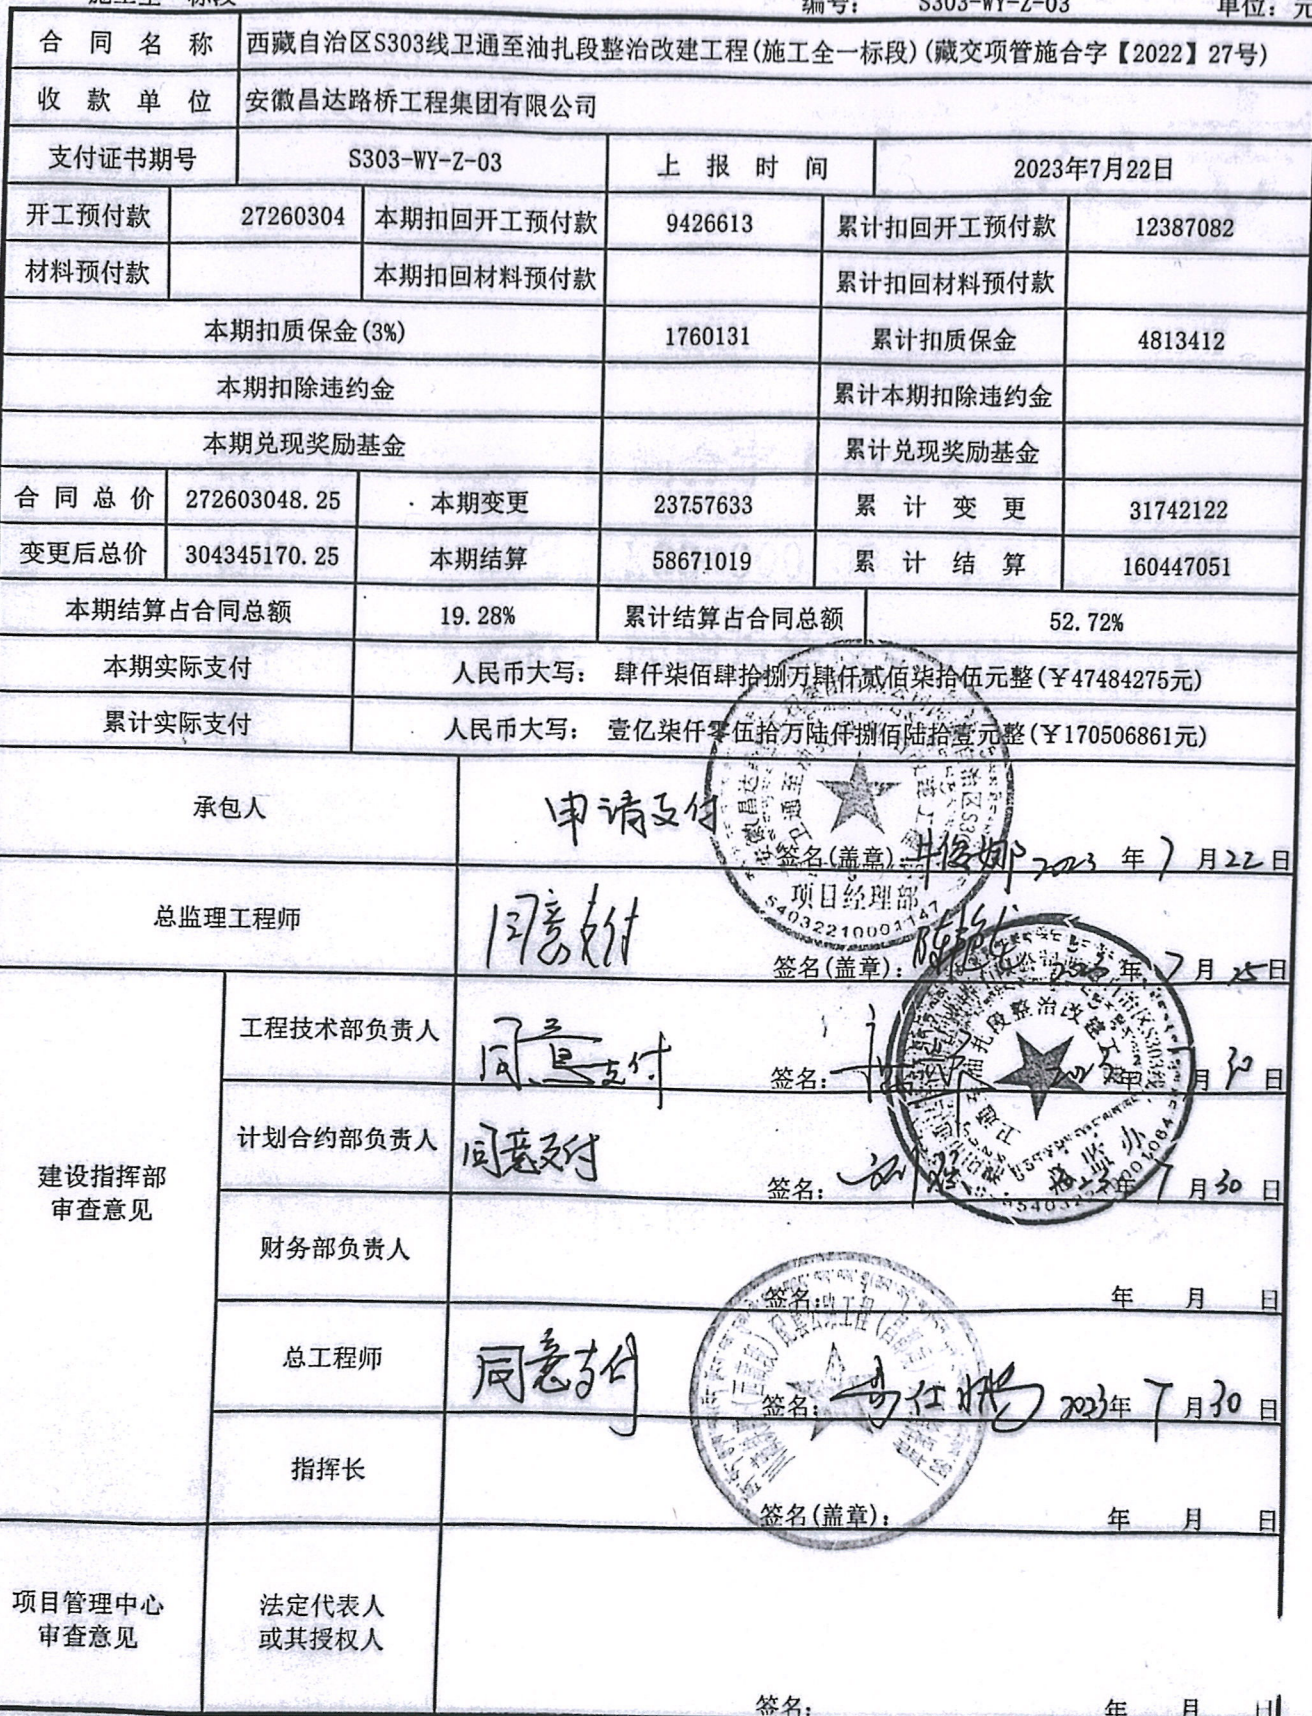 编号： S303-WY-Z-03 单位：元
合同名称 西藏自治区S303线卫通至油扎段整治改建工程(施工全一标段)(藏交项管施合字【2022】27号)
收款单位 安徽昌达路桥工程集团有限公司
支付证书期号 S303-WY-Z-03 上报时间 2023年7月22日
开工预付款 27260304 本期扣回开工预付款 9426613 累计扣回开工预付款 12387082
材料预付款 本期扣回材料预付款 累计扣回材料预付款
本期扣质保金(3%) 1760131 累计扣质保金 4813412
本期扣除违约金 累计本期扣除违约金
本期兑现奖励基金 累计兑现奖励基金
合同总价 272603048.25 本期变更 23757633 累计变更 31742122
变更后总价 304345170.25 本期结算 58671019 累计结算 160447051
本期结算占合同总额 19.28% 累计结算占合同总额 52.72%
本期实际支付 人民币大写： 肆仟柒佰肆拾捌万肆仟贰佰柒拾伍元整(￥47484275元)
累计实际支付 人民币大写： 壹亿柒仟零伍拾万陆仟捌佰陆拾壹元整(￥170506861元)
承包人 申请支付
签名(盖章)： 2023 年 7 月 22 日
项目经理部
54032210001147
总监理工程师 同意支付
签名(盖章)： 2023 年 7 月 25 日
建设指挥部
审查意见
工程技术部负责人 同意支付
签名： 年 月 30 日
计划合约部负责人 同意支付
签名： 年 7 月 30 日
总监办
财务部负责人
签名： 年 月 日
总工程师 同意支付
签名： 2023年 7 月 30 日
指挥长
签名(盖章)： 年 月 日
项目管理中心
审查意见
法定代表人
或其授权人
签名： 年 月 日